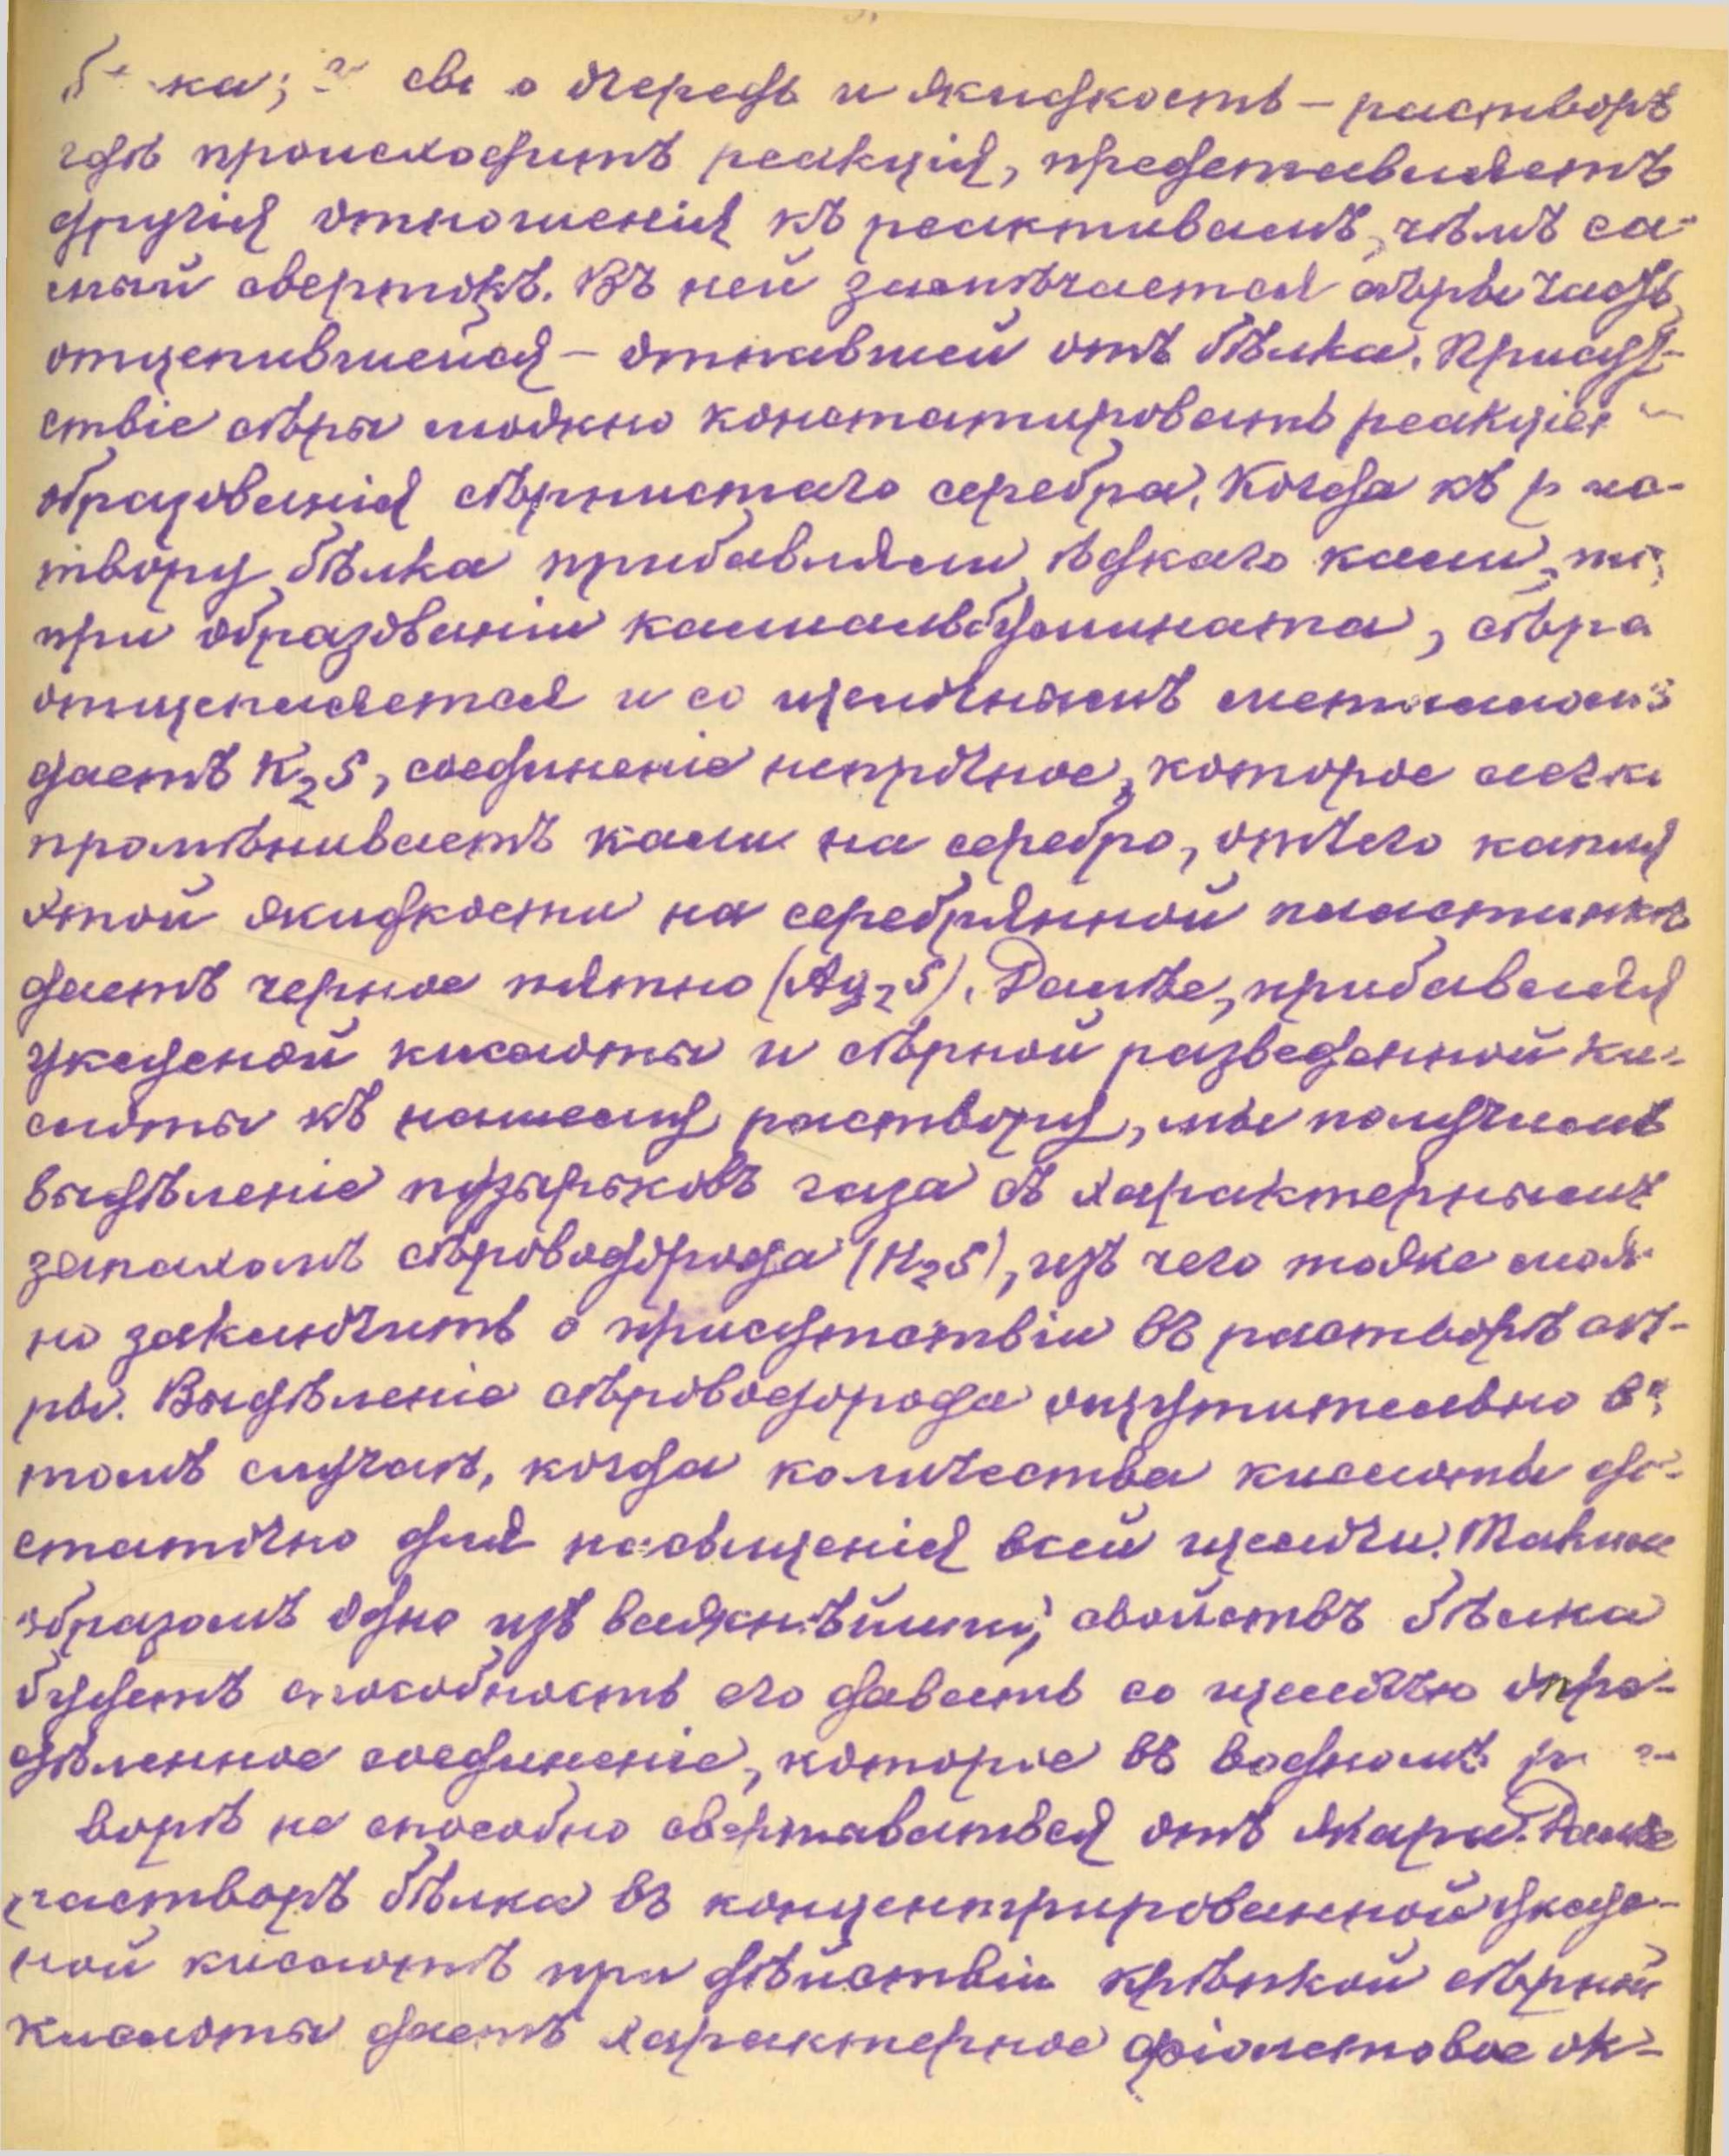 бѣлка; въ свою очередь и жидкость — растворъ
гдѣ происходитъ реакція, представляетъ
другія отношенія къ реактивамъ, чѣмъ са-
мый свертокъ. Въ ней замѣчается сѣры часть,
отщепившейся — отпавшей отъ бѣлка. Присут-
ствіе сѣры можно констатировать реакціей
образованія сѣрнистаго серебра. Когда къ рас-
твору бѣлка прибавляли ѣдкаго кали, то,
при образованіи калиальбумината, сѣра
отщепляется и со щелочнымъ металломъ
даетъ K₂S, соединеніе непрочное, которое легко
промѣниваетъ кали на серебро, отчего капля
этой жидкости на серебрянной пластинкѣ
даетъ черное пятно (Ag₂S). Далѣе, прибавляя
уксусной кислоты и сѣрной разведенной ки-
слоты къ нашему раствору, мы получимъ
выдѣленіе пузырьковъ газа съ характернымъ
запахомъ сѣроводорода (H₂S), изъ чего тоже мож-
но заключить о присутствіи въ растворѣ сѣ-
ры. Выдѣленіе сѣроводорода ощутительно въ
томъ случаѣ, когда количества кислоты до-
статочно для насыщенія всей щелочи. Такимъ
образомъ одно изъ важнѣйшихъ свойствъ бѣлка
будетъ способность его давать со щелочью опре-
дѣленное соединеніе, которое въ водномъ раст-
ворѣ не способно свертываться отъ жара. Далѣе
растворъ бѣлка въ концентрированной уксус-
ной кислотѣ при дѣйствіи крѣпкой сѣрной
кислоты даетъ характерное фіолетовое ок-